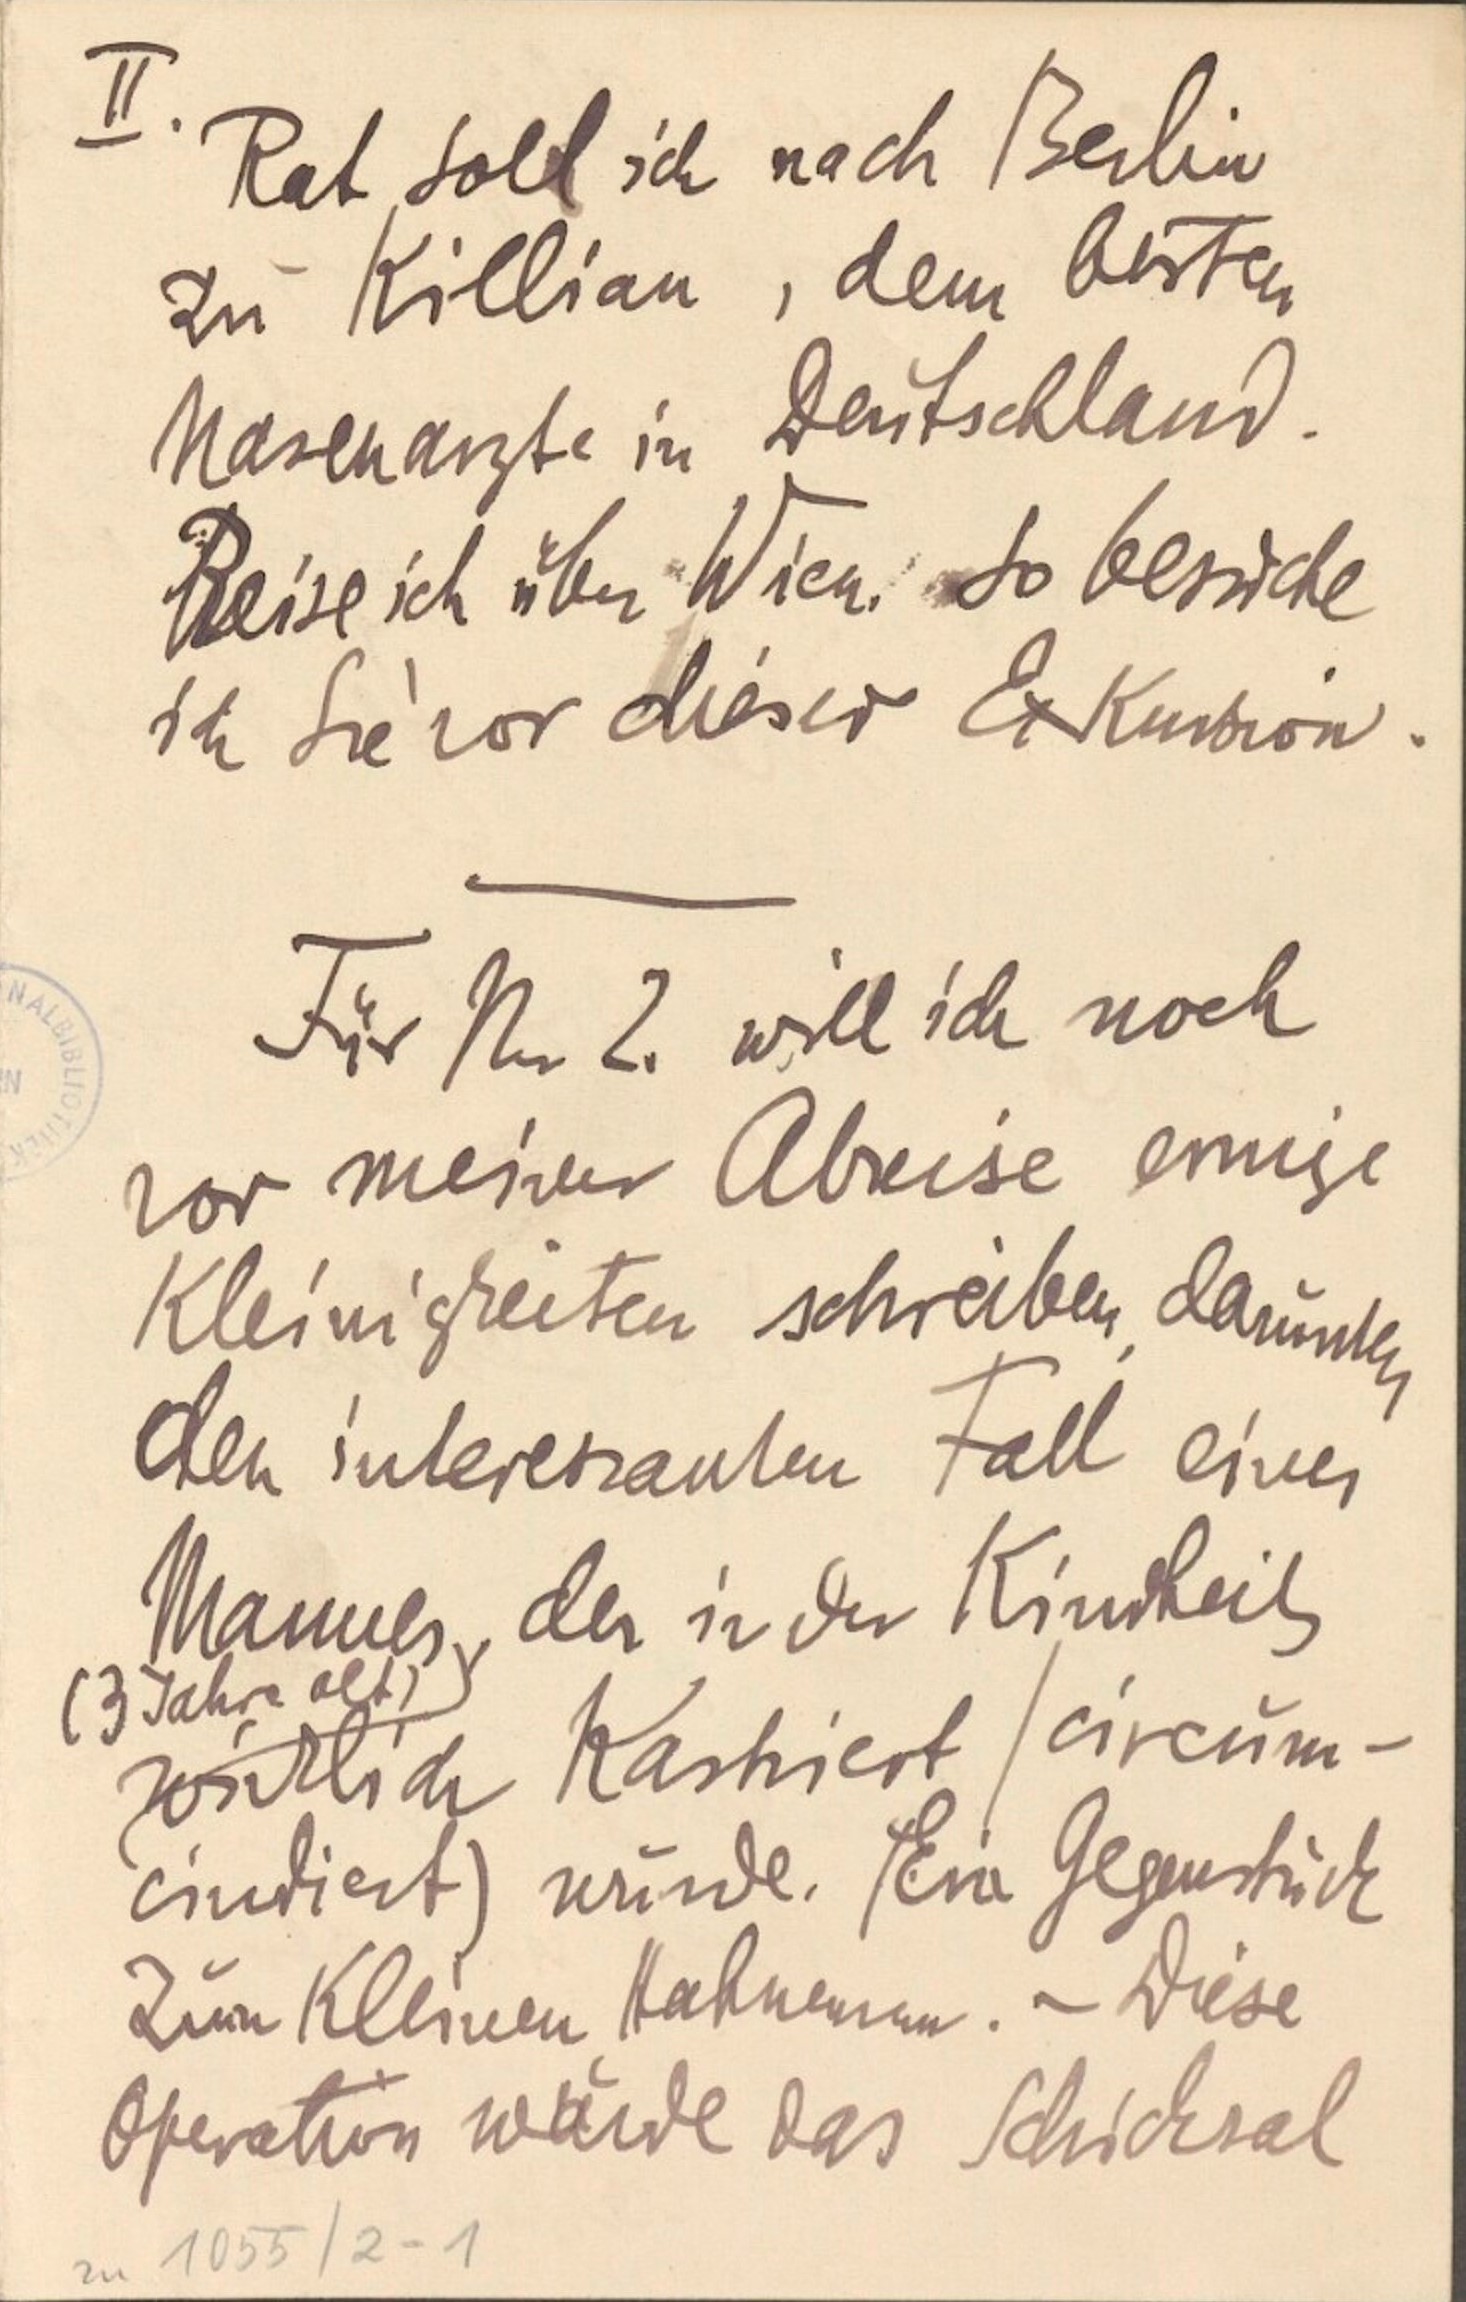 II.
Rat soll ich nach Berlin
zu Killian, dem besten
Nasenarzte in Deutschland.
Reise ich über Wien. so besuche
ich Sie vor dieser Exkursion.
Für Nr 2. will ich noch
vor meiner Abreise einige
Kleinigkeiten schreiben, darunter
den interessanten Fall eines
Mannes, der in der Kindheit
(3 Jahre alt)
wirklich kastriert (circum-
cindiert) wurde. (Ein Gegenstück
zum kleinen Hahnemann. – Diese
Operation würde das Schicksal
zu 1055/2-1
NALBIBLIOTHEK
RN